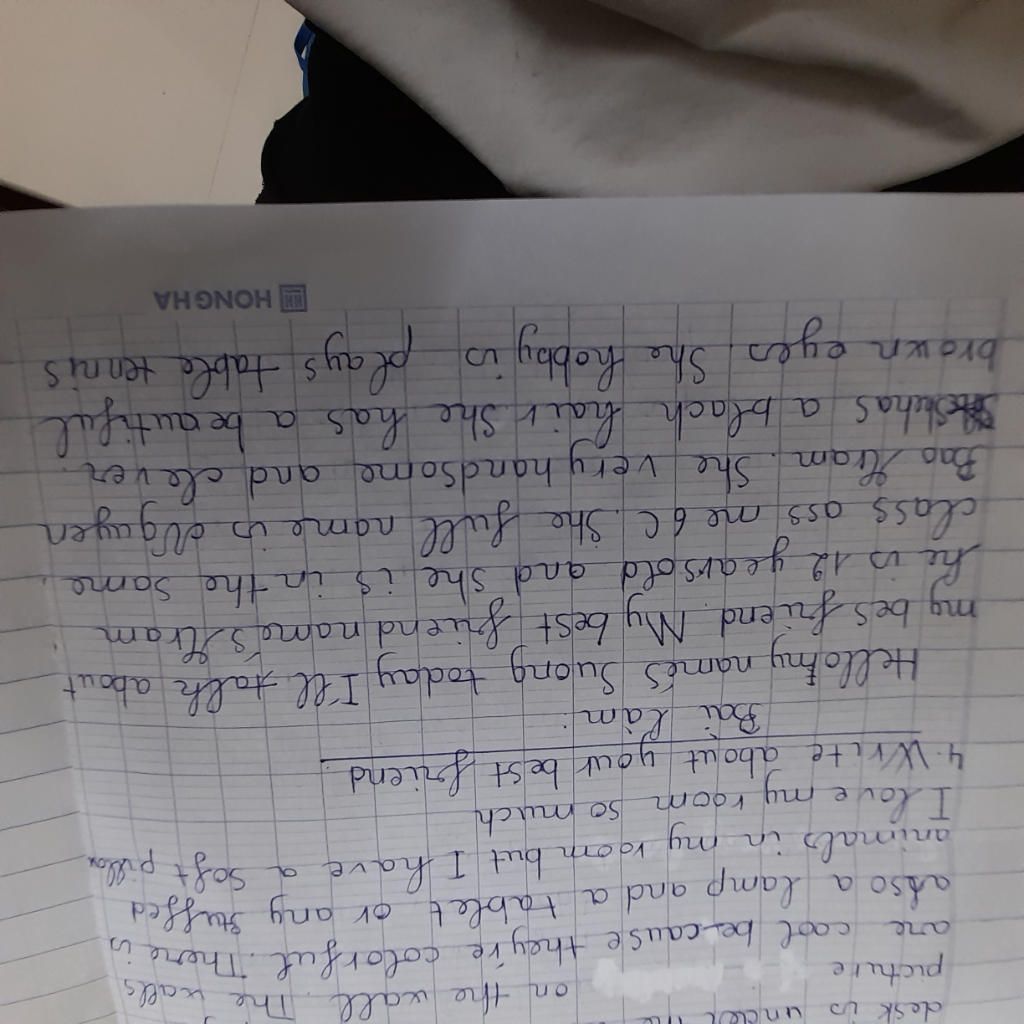 desk is under the
picture on the wall. The walls
are cool because they're colorful. There is
also a lamp and a tablet or any stuffed
animals in my room but I have a soft pillow
I love my room so much
4. Write about your best friend.
Bài làm:
Hello my name's Suong today I'll talk about
my bes friend. My best friend name's Tram
he is 12 years old and she is in the same
class ass me 6C. She full name is Nguyen
Bao Tram. She very handsome and clever.
She has a blach hair she has a beautiful
brown eyes she hobby is plays table tennis
HONG HA